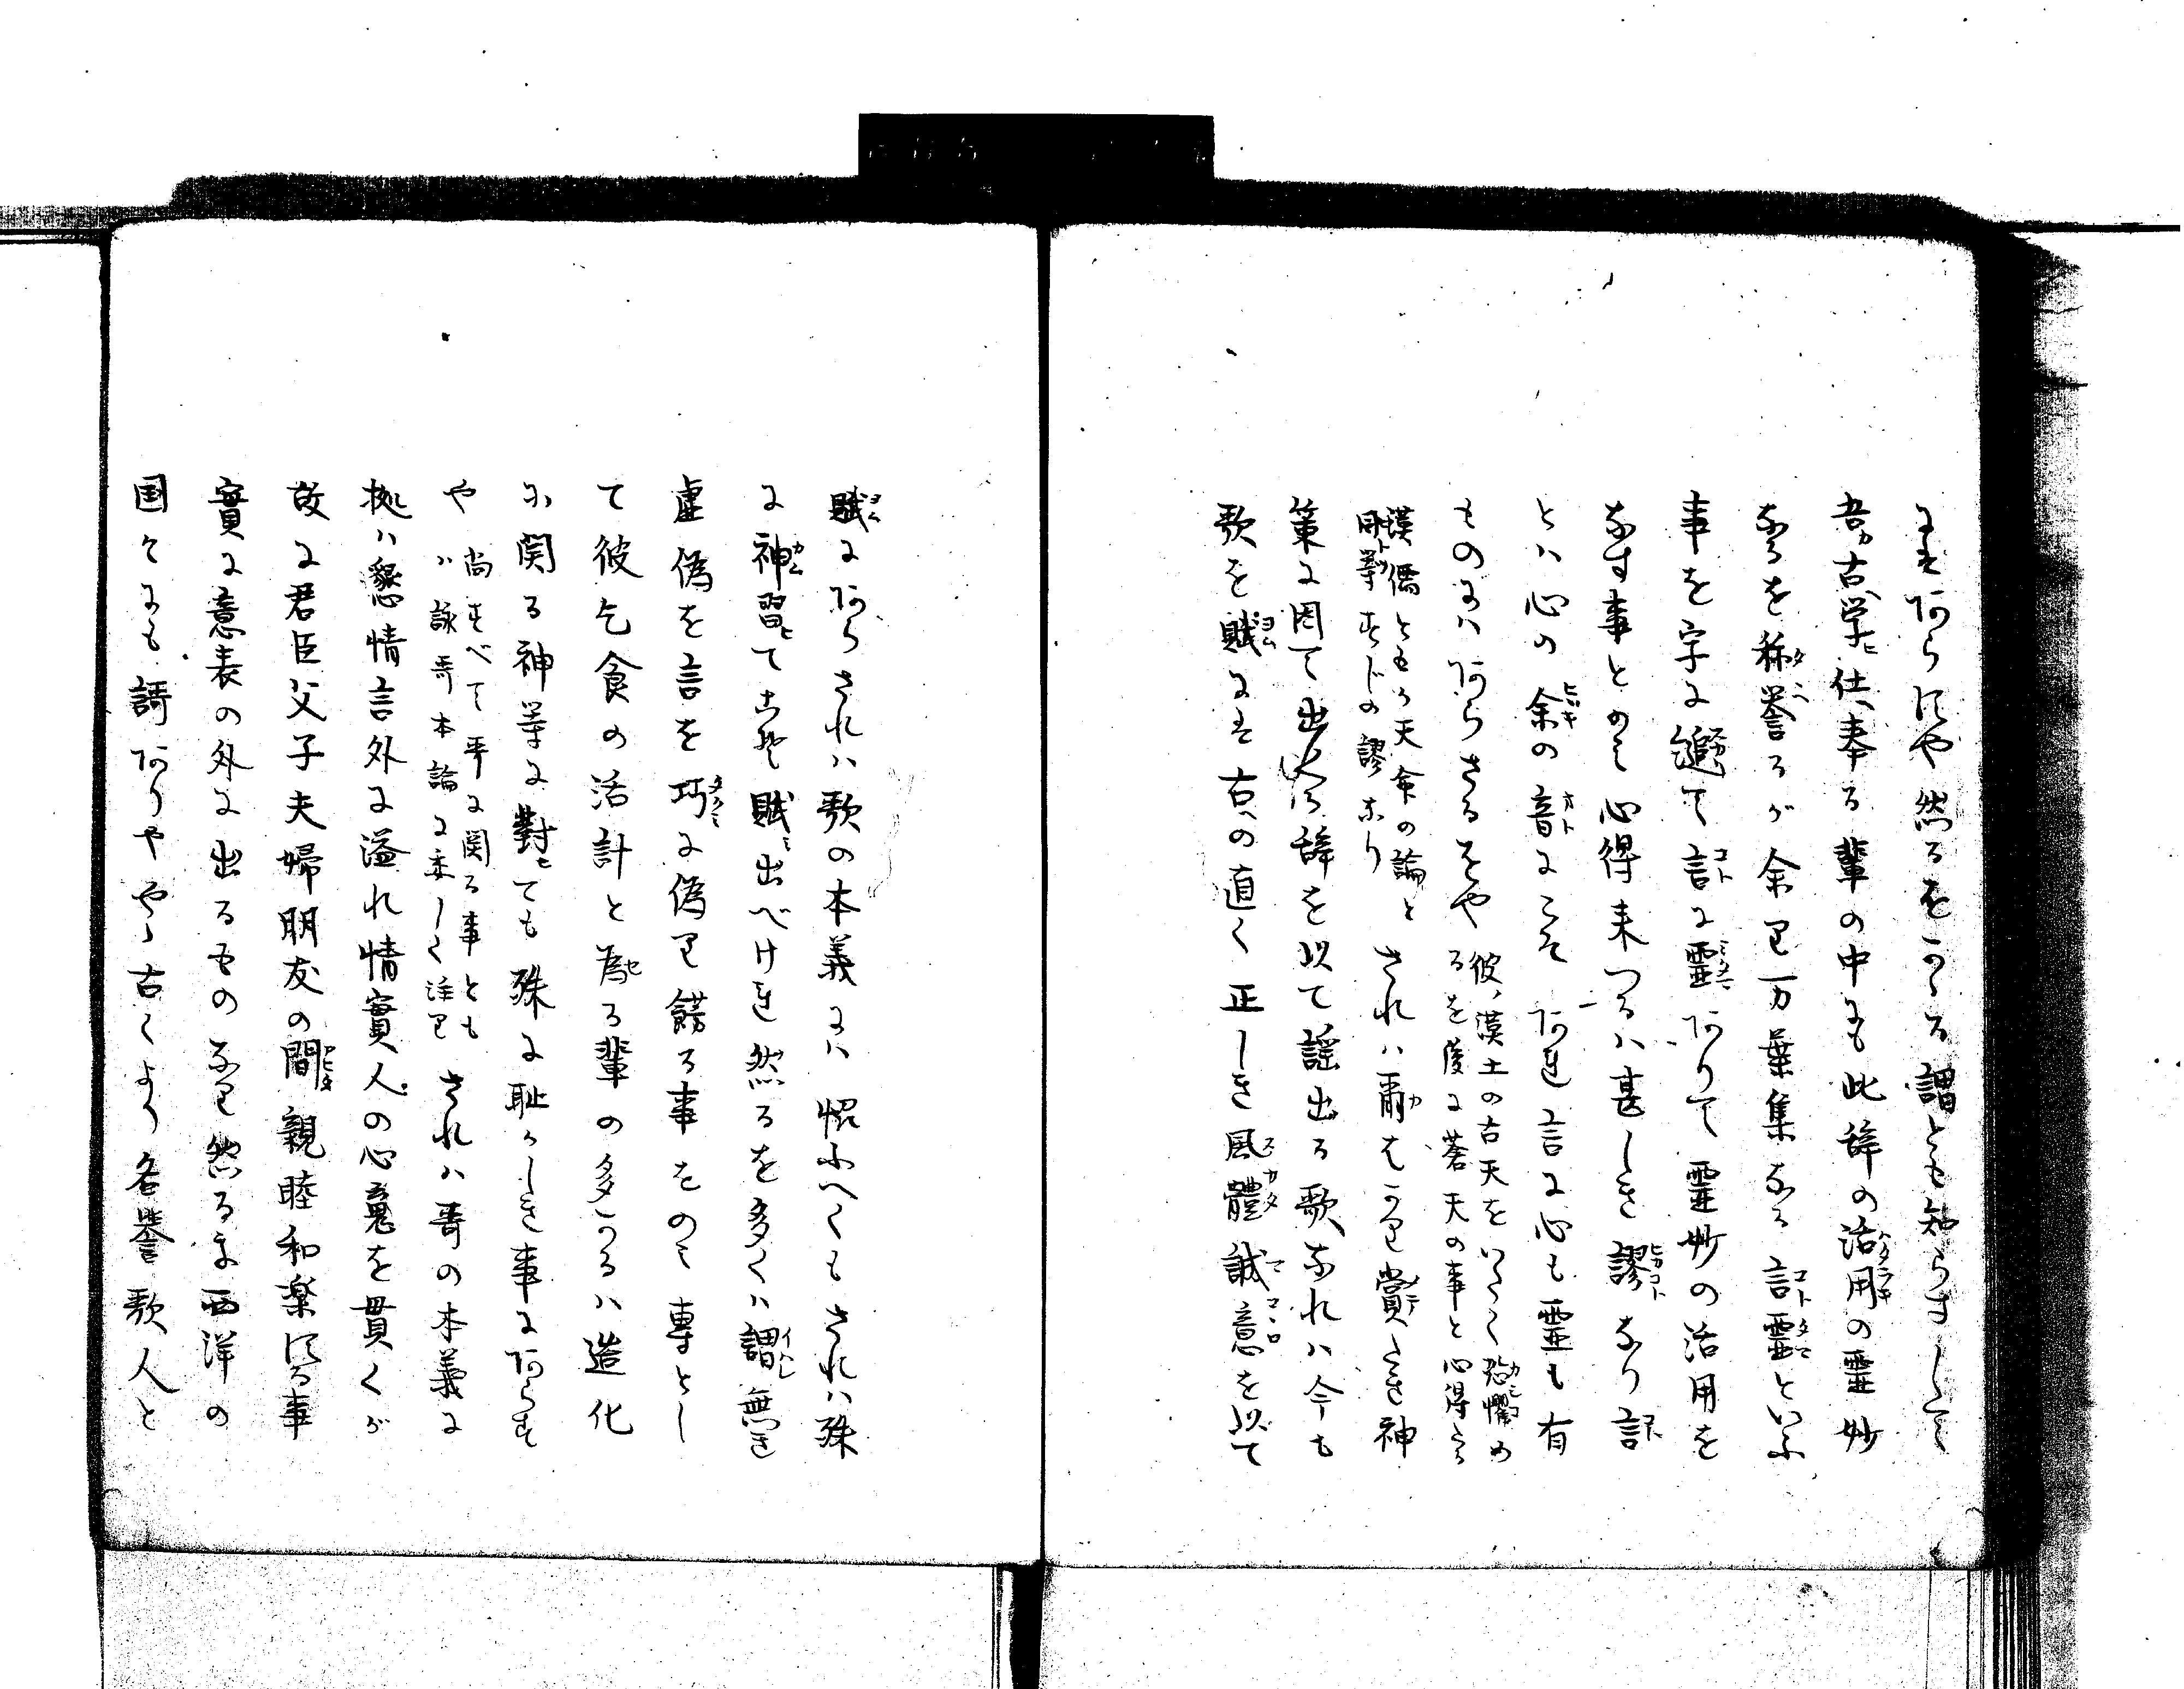 にあらずや然るをかゝる謂とも知らすして
吾古学仕奉る輩の中にも此辞の活用の霊妙
なるを称誉るが余り万葉集なる言霊といふ
事を字に縋て言に霊ありて霊妙の活用を
なす事とのみ心得来つるハ甚しき謬なり言
とハ心の余の音にこそあれ言に心も霊も有
ものにハあらさるをや
彼ノ漢土の古天をいたく恐懼め
るを後に蒼天の事と心得たる
漢儒と云る天命の論と
同等すじの謬なり
されハ爾はかり賞たき神
策に因て出る辞を以て謡出る歌なれハ今も
歌を賦にハ古への直く正しき風體誠意を以て
賦にあらされハ歌の本義にハ惺ふへくもされハ殊
に神習てこそ賦ミ出べけれ然るを多くハ謂無き
虚偽を言を巧に偽り餝る事をのミ専とし
て彼乞食の活計と為る輩の多かるハ造化
に関る神等に對ても殊に恥かしき事にあらす
や
尚すべて平に関る事とも
ハ詠哥本論に委しく注り
されハ哥の本義に
拠ハ懇情言外に溢れ情實人の心意を貫くが
故に君臣父子夫婦朋友の間親睦和楽する事
實に意表の外に出るものなり然るに西洋の
国々にも謌ありややゝ古くより名誉歌人と